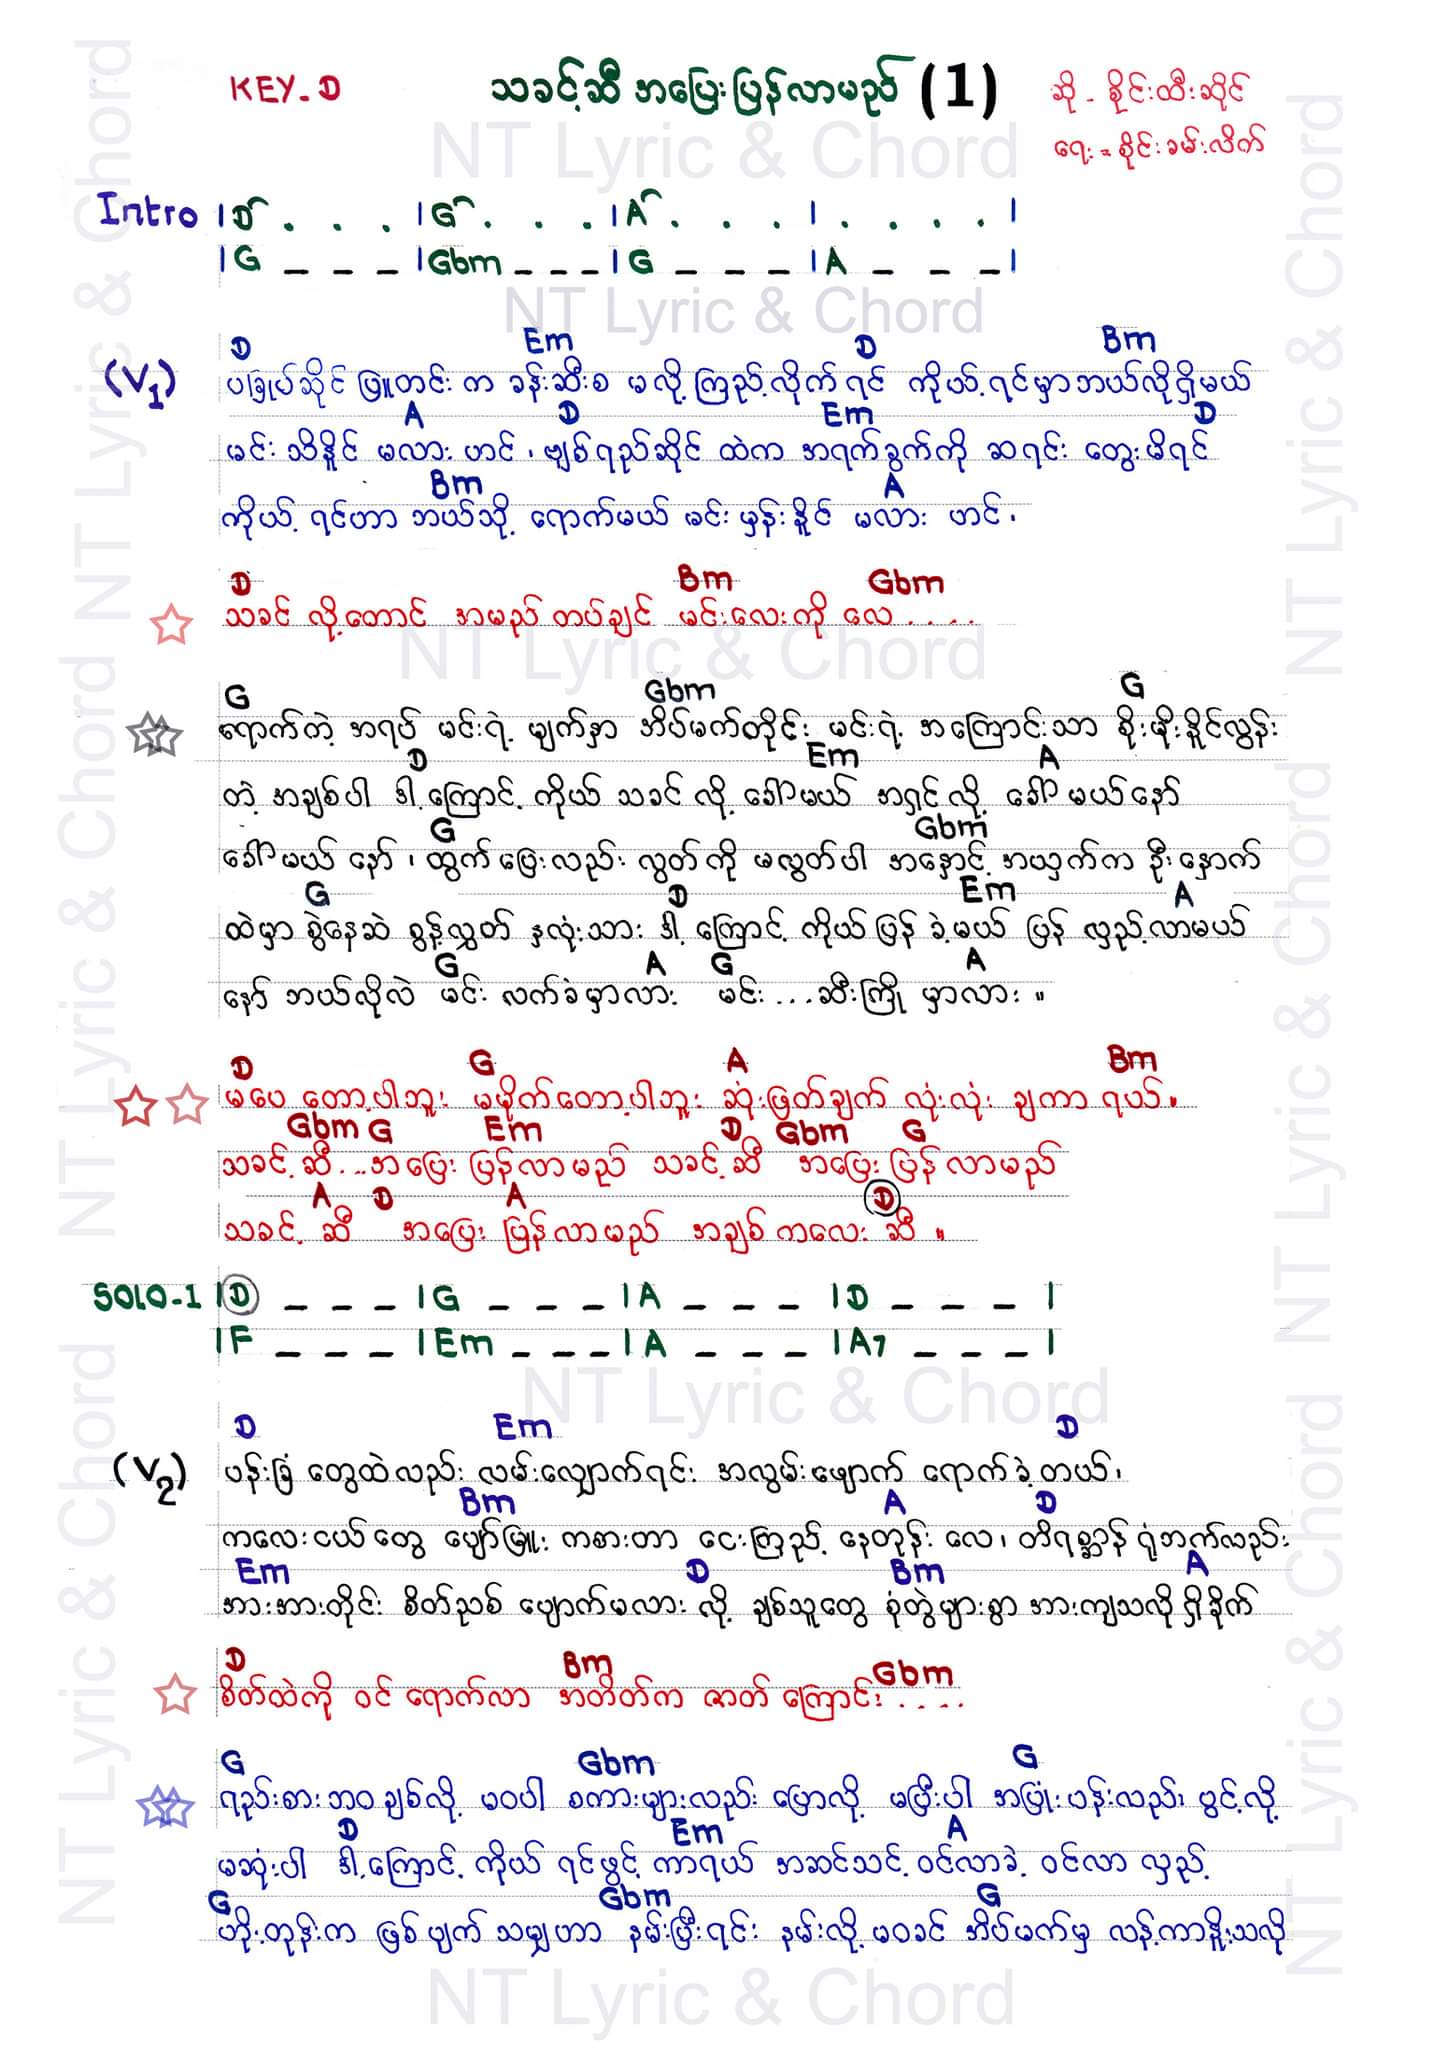 KEY-D
သခင့်ဆီ အပြေးပြန်လာမည် (1)
ဆို - စိုင်းထီးဆိုင်
ရေး = စိုင်းခမ်းလိတ်
NT Lyric & Chord
Intro | D . . . | G . . . | A . . . | . . . . |
| G _ _ _ | Gbm _ _ _ | G _ _ _ | A _ _ _ |
NT Lyric & Chord
(V1)
D Em D Bm
ပန်းချုပ်ဆိုင် ဖြူတင်း က ခန်းဆီးစ မလို့ ကြည့်လိုက် ရင် ကိုယ့်ရင်မှာဘယ်လိုရှိမယ်
A D Em D
မင်း သိနိုင် မလား ဟင်၊ ဗျစ်ရည်ဆိုင် ထဲက အရက်ခွက်ကို ဆရင်း တွေးမိရင်
Bm A
ကိုယ့် ရင်ဟာ ဘယ်သို့ ရောက်မယ် မင်း မှန်းနိုင် မလား ဟင်၊
D Bm Gbm
သခင် လို့တောင် အမည် တပ်ချင် မင်းလေးကို လေ....
NT Lyric & Chord
G Gbm G
ရောက်တဲ့ အရပ် မင်းရဲ့ မျက်နှာ အိပ်မက်တိုင်း မင်းရဲ့ အကြောင်းသာ စိုးမိုးနိူင်လွန်း
D Em A
တဲ့ အချစ်ပါ ဒါ့ကြောင့် ကိုယ် သခင် လို့ ခေါ်မယ် အရှင်လို့ ခေါ်မယ်နော်
G Gbm
ခေါ်မယ် နော်၊ ထွက်ပြေးလည်း လွတ်ကို မလွတ်ပါ အနှောင့် အယှက်က ဦးနှောက်
G D Em A
ထဲမှာ စွဲနေဆဲ စွန့်လွှတ် နှလုံးသား ဒါ့ ကြောင့် ကိုယ်ပြန် ခဲ့မယ် ပြန် လှည့်လာမယ်
G A G A
နော် ဘယ်လိုလဲ မင်း လက်ခံမှာလား မင်း...ဆီးကြို မှာလား ။
D G A Bm
မပေ တော့ပါဘူး မမိုက်တော့ပါဘူး ဆုံးဖြတ်ချက် လုံးလုံး ချကာ ရယ်။
Gbm G Em D Gbm G
သခင့် ဆီ...အပြေး ပြန်လာမည် သခင့် ဆီ အပြေး ပြန်လာမည်
A D A D
သခင့် ဆီ အပြေး ပြန်လာမည် အချစ်ကလေး ဆီ ။
SOLO-1 | D _ _ _ | G _ _ _ | A _ _ _ | D _ _ _ |
| F _ _ _ | Em _ _ _ | A _ _ _ | A7 _ _ _ |
NT Lyric & Chord
(V2)
D Em D
ပန်းခြံ တွေထဲလည်း လမ်းလျှောက်ရင်း အလွမ်းဖျောက် ရောက်ခဲ့တယ်၊
Bm A D
ကလေးငယ်တွေ ပျော်မြူး ကစားတာ ငေးကြည့် နေတုန်း လေ၊ တိရစ္ဆာန် ရုံဘက်လည်း
Em D Bm A
အားအားတိုင်း စိတ်ညစ် ပျောက်မလား လို့ ချစ်သူတွေ စုံတွဲများစွာ အားကျသလိုရှိခိုက်
D Bm Gbm
စိတ်ထဲကို ဝင် ရောက်လာ အတိတ်က ဇာတ် ကြောင်း....
G Gbm G
ရည်းစား ဘဝ ချစ်လို့ မဝပါ စကားများလည်း ပြောလို့ မပြီးပါ အပြုံးပန်းလည်း ပွင့်လို့
D Em A
မဆုံးပါ ဒါ့ကြောင့် ကိုယ် ရင်ဖွင့် ကာရယ် အဆင်သင့် ဝင်လာခဲ့ ဝင်လာ လှည့်
G Gbm G
ဟိုးတုန်းက ဖြစ်ပျက် သမျှဟာ နမ်းပြီးရင်း နမ်းလို့ မဝခင် အိပ်မက်မှ လန့်ကာနိူးသလို
NT Lyric & Chord